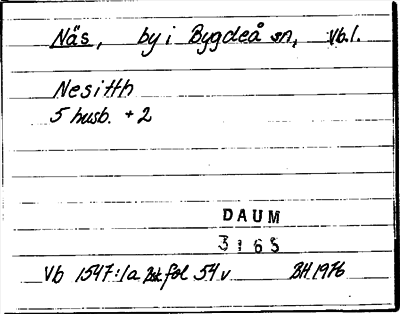 Näs, by i Bygdeå sn, Vb.l.
Nesitth
5 husb. + 2
DAUM
3165
Vb 1547:1a fol 54 v BH 1976